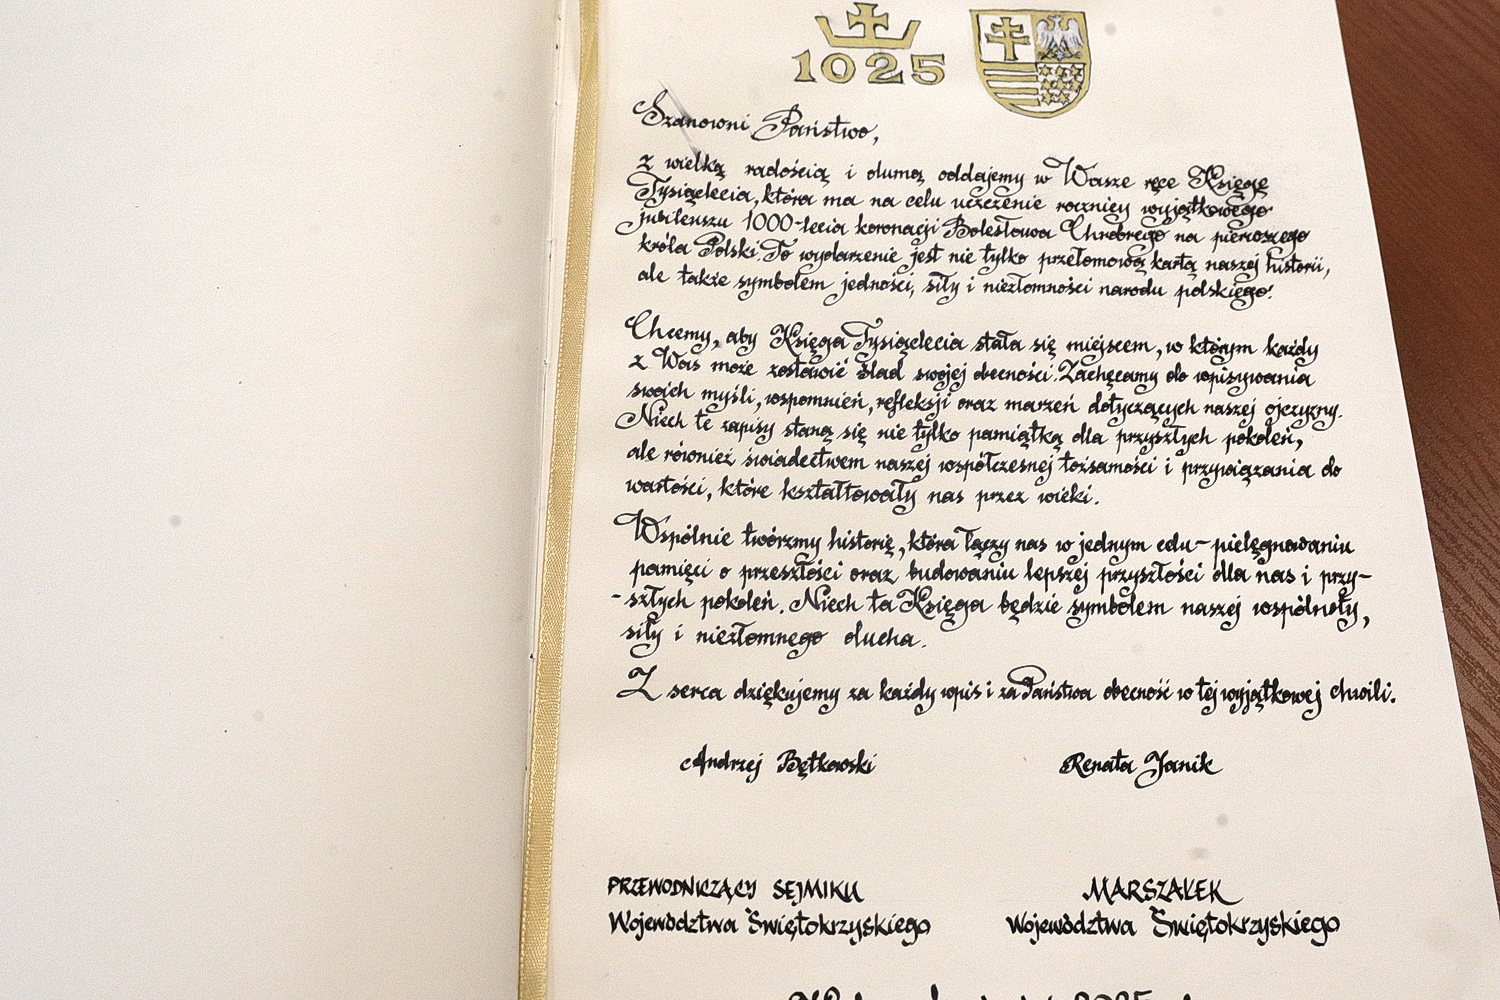 1025
Szanowni Państwo,
z wielką radością i dumą oddajemy w Wasze ręce Księgę
Tysiąclecia, która ma na celu uczczenie rocznicy wyjątkowego
jubileuszu 1000-lecia koronacji Bolesława Chrobrego na pierwszego
króla Polski. To wydarzenie jest nie tylko przełomową kartą naszej historii,
ale także symbolem jedności, siły i niezłomności narodu polskiego.
Chcemy, aby Księga Tysiąclecia stała się miejscem, w którym każdy
z Was może zostawić ślad swojej obecności. Zachęcamy do wpisywania
swoich myśli, wspomnień, refleksji oraz marzeń dotyczących naszej ojczyzny.
Niech te zapisy staną się nie tylko pamiątką dla przyszłych pokoleń,
ale również świadectwem naszej współczesnej tożsamości i przywiązania do
wartości, które kształtowały nas przez wieki.
Wspólnie twórzmy historię, która łączy nas w jednym celu - pielęgnowaniu
pamięci o przeszłości oraz budowaniu lepszej przyszłości dla nas i przy-
-szłych pokoleń. Niech ta Księga będzie symbolem naszej wspólnoty,
siły i niezłomnego ducha.
Z serca dziękujemy za każdy wpis i za Państwa obecność w tej wyjątkowej chwili.
Andrzej Bętkowski Renata Janik
PRZEWODNICZĄCY SEJMIKU MARSZAŁEK
Województwa Świętokrzyskiego Województwa Świętokrzyskiego
2025